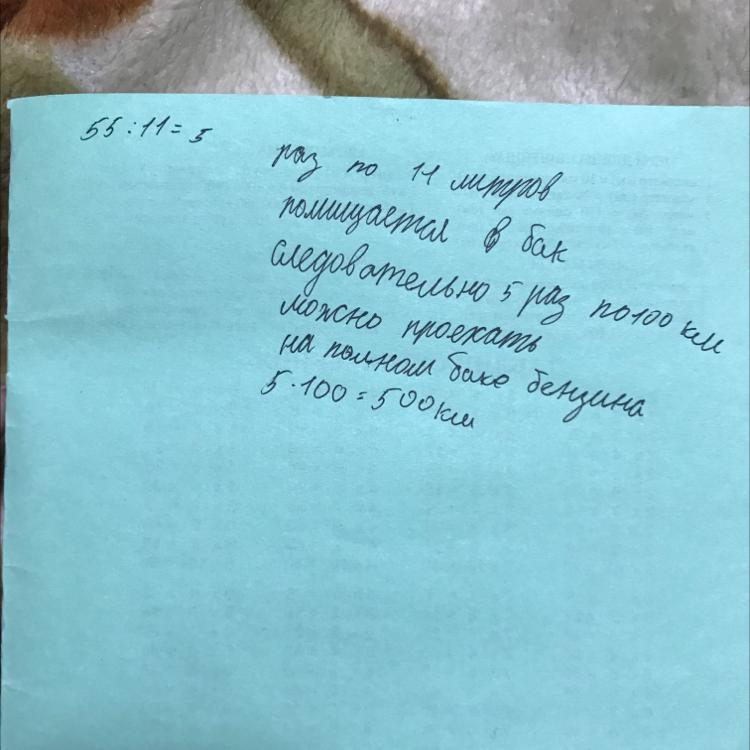 55 : 11 = 5
раз по 11 литров
помищается в бак
следовательно 5 раз по 100 км
можно проехать
на полном баке бензина
5 · 100 = 500 км